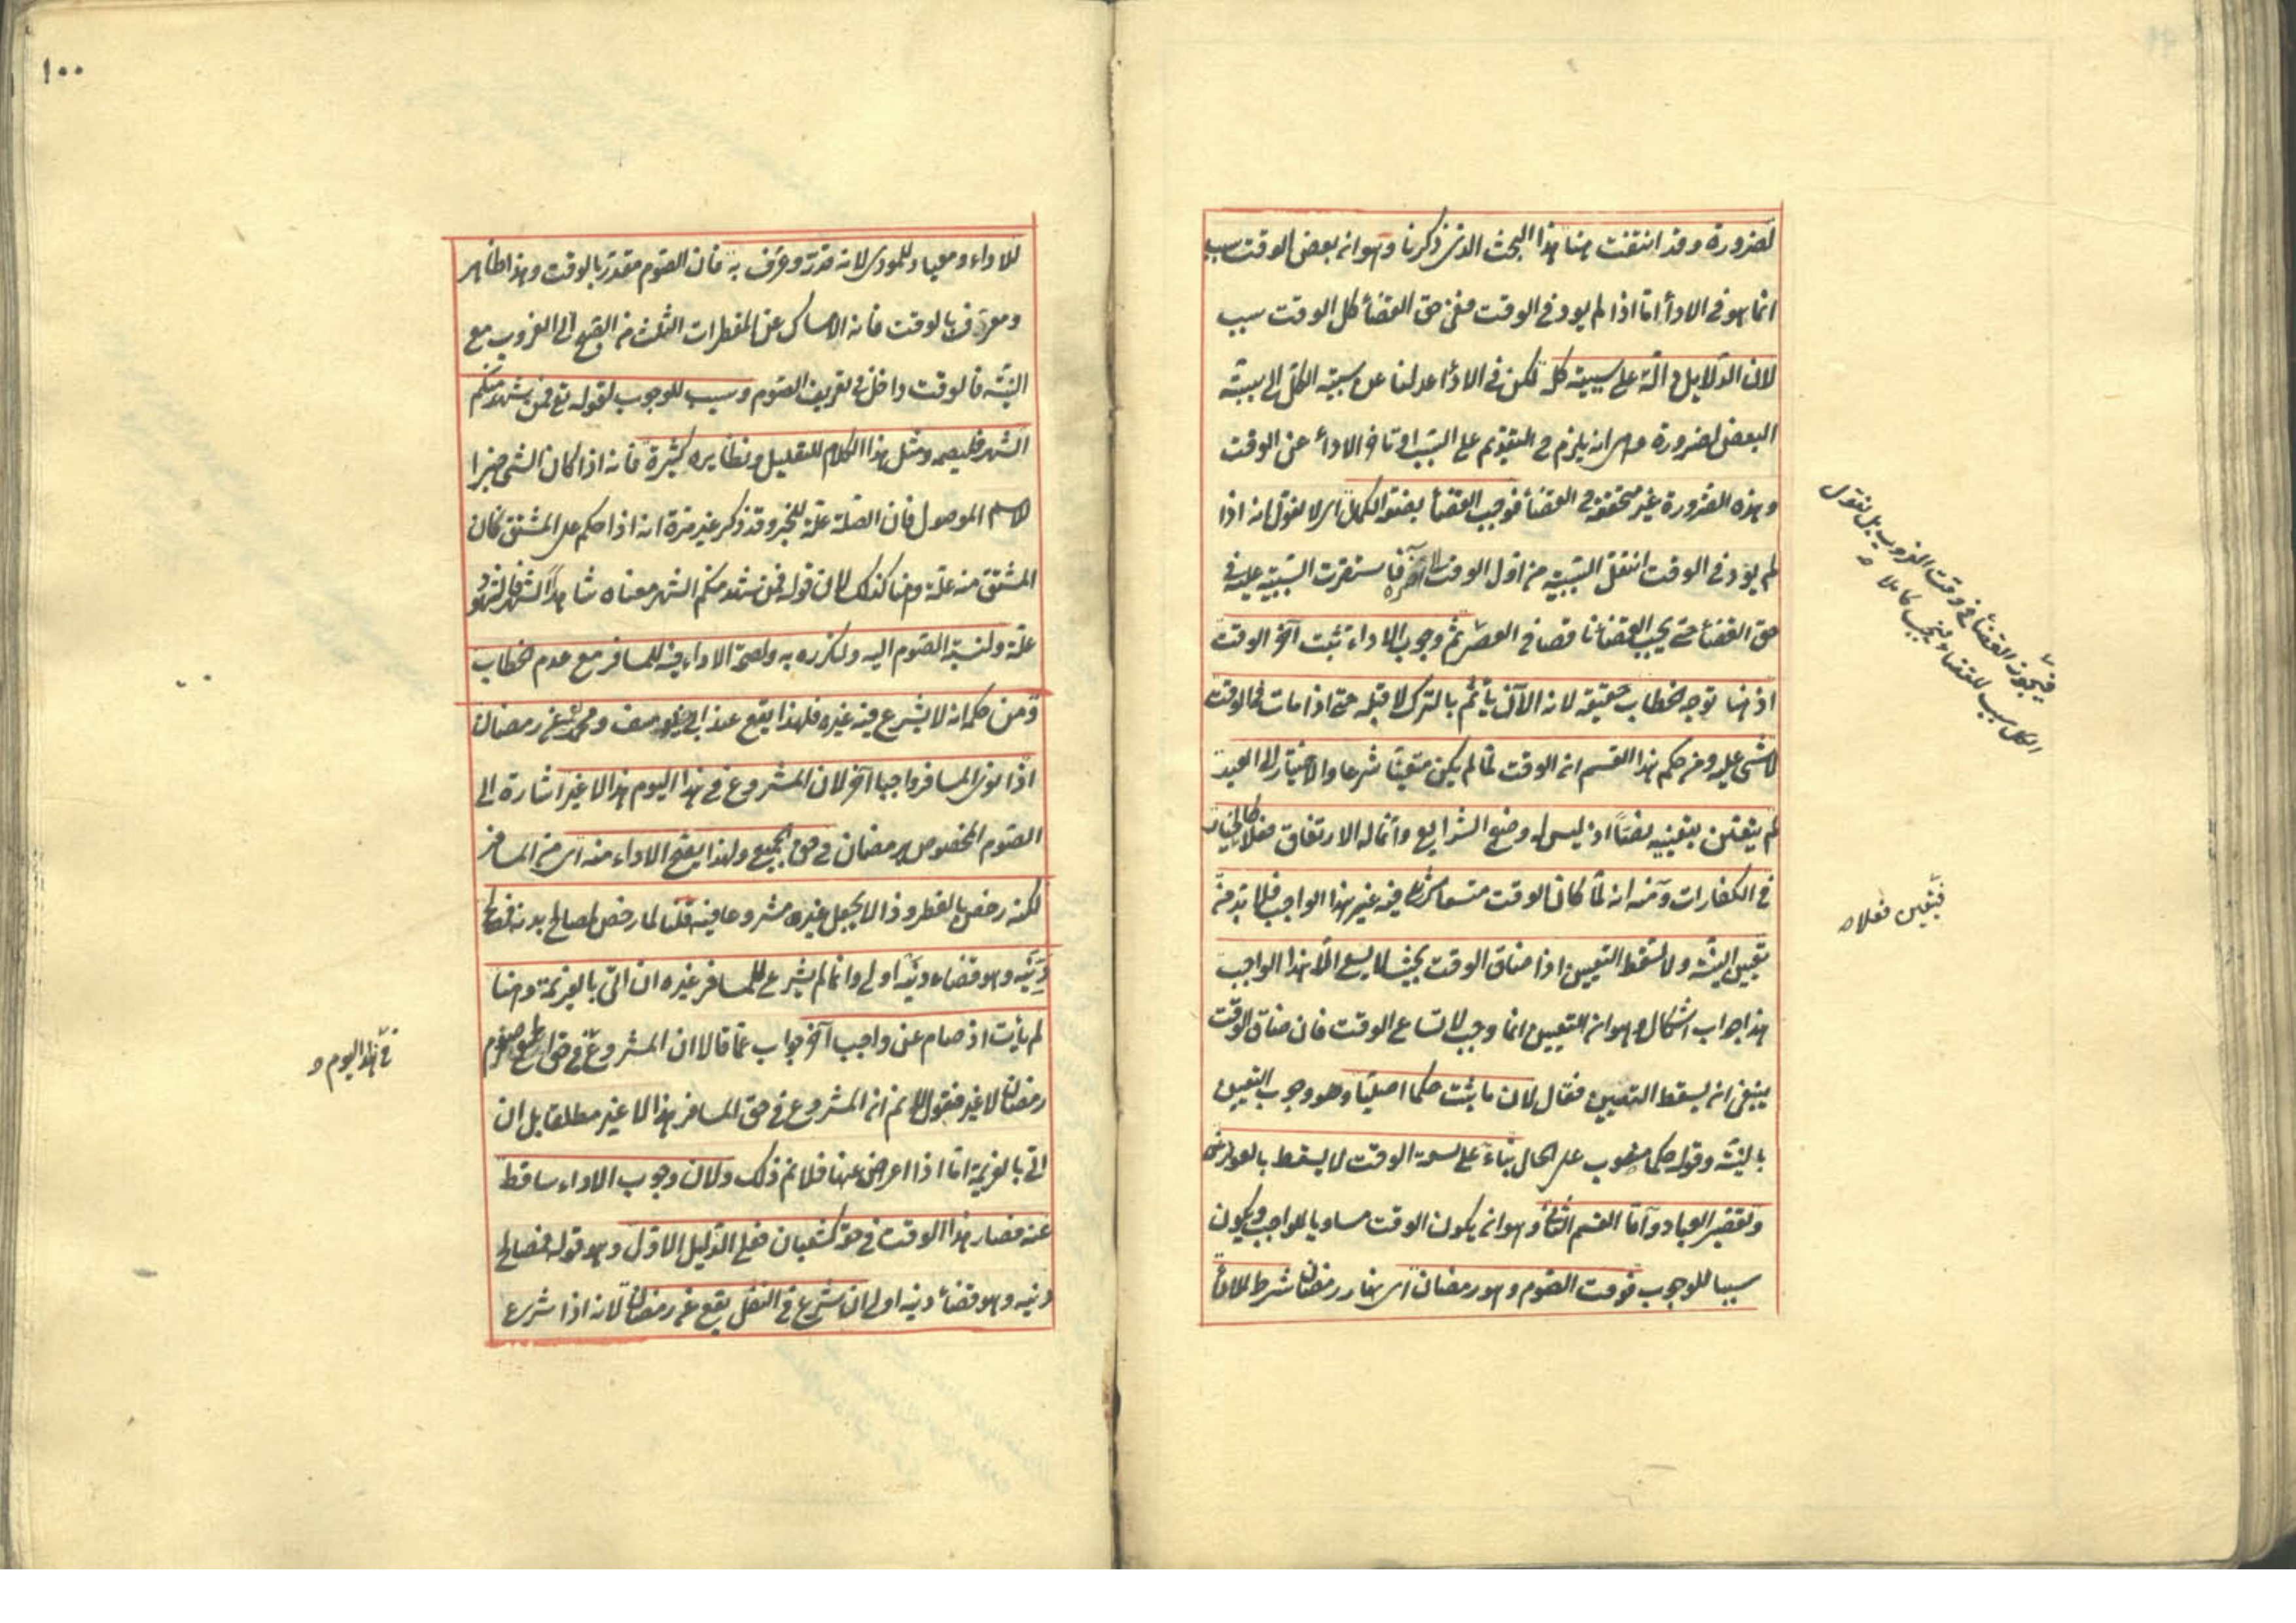 لضرورة وقد انتفت هنا هذا البحث الذى ذكرنا وهو ان بعض الوقت سبب
انما هو فى الاداء اما اذا لم يود فى الوقت ففى حق القضاء كل الوقت سبب
لان الدلايل دالة على سببية كل لكن فى الاداء عدلنا عن سببية الكل الى سببية
البعض لضرورة وهى انه يلزم ح التقديم على السبب او تاخر الاداء عن الوقت
وهذه الضرورة غير متحققة فى القضاء فوجب القضاء بصفة الكمال اى لا نقول انه اذا
لم يود فى الوقت انتقل السببية من اول الوقت الى آخره فاستقرت السببية عليه فى
حق القضاء حتى يجب القضاء ناقصا فى العصر ثم وجوب الاداء تثبت آخر الوقت
اذ هنا توجه الخطاب حقيقة لانه الآن يأثم بالترك لا قبله حتى اذا مات فى الوقت
لا شئ عليه ومن حكم هذا القسم ان الوقت لما لم يكن متعينا شرعا والاختيار الى العبد
لم يتعين بتعيينه نصا اذ ليس له وضع الشرايع وانما له الارتفاق فعلا كالخيار
فى الكفارات ومنه انه لما كان الوقت متسعا شرع فيه غير هذا الواجب فلا بد من
تعيين النية ولا تسقط التعيين اذا ضاق الوقت بحيث لا يسع الا لهذا الواجب
هذا جواب اشكال وهو ان التعيين انما وجب لاتساع الوقت فان ضاق الوقت
ينبغى ان يسقط التعيين فقال لان ما يثبت حكما اصليا وهو وجوب التعيين
بالنية وقوله حكما منصوب على الحال بناء على سعة الوقت لا يسقط بالعوارض
وتقصير العباد وآما القسم الثانى وهو ان يكون الوقت مساويا للواجب ويكون
سببا للوجوب فوقت الصوم وهو رمضان اى نهار رمضان شرط للاداء
فيجوز القضاء فى وقت الغروب بل نقول
الكل سبب للقضاء فيجب كاملا
فيتعين فعلا
١٠٠
للاداء ومعيار للمودى لانه قدر وعرف به فان الصوم مقدر بالوقت وهذا ظاهر
ومعرف بالوقت فانه الامساك عن المفطرات الثلث من الصبح الى الغروب مع
النية فالوقت داخل فى تعريف الصوم وسبب للوجوب لقوله تع فمن شهد منكم
الشهر فليصمه ومثل هذا الكلام للتعليل ونظايره كثيرة فانه اذا كان الشئ خبرا
لاسم الموصول فان الصلة علة للخبر وقد ذكر غير مرة انه اذا حكم على المشتق كان
المشتق منه علة وهنا كذلك لان قوله فمن شهد منكم الشهر معناه شاهد الشهر فالشهود
علة ولنسبة الصوم اليه ولتكرره به ولصحة الاداء فيه للمسافر مع عدم الخطاب
ومن حكمه ان لا يشرع فيه غيره فلهذا يقع عند ابى يوسف ومحمد عن رمضان
اذا نوى المسافر واجبا آخر لان المشروع فى هذا اليوم هذا لا غير اشارة الى
الصوم المخصوص برمضان فى حق الجميع ولهذا يصح الاداء منه اى من المسافر
لكنه رخص بالفطر وذا لا يجعل غيره مشروعا فيه قلنا لما رخص لمصالح بدنه فمصالح
دينه وهو قضاء دينه اولى وانما لم يشرع للمسافر غيره ان اتى بالعزيمة وهنا
لم يأت اذ صام عن واجب آخر جواب عما قالا ان المشروع فى حق الجميع صوم
رمضان لا غير فنقول لا نم ان المشروع فى حق المسافر هذا لا غير مطلقا بل ان
اتى بالعزيمة اما اذا اعرض عنها فلا نم ذلك ولان وجوب الاداء ساقط
عنه فصار هذا الوقت فى حقه كشعبان فعلى الدليل الاول وهو قوله فمصالح
دينه وهو قضاء دينه اولى ان شرع فى النفل يقع عن رمضان لانه اذا شرع
فى هذا اليوم